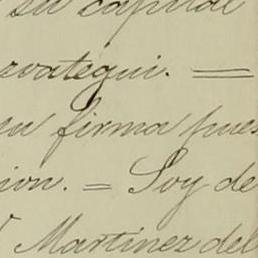 su capital
rvategui. =
su firma pues
ion. = Soy de
Martinez del